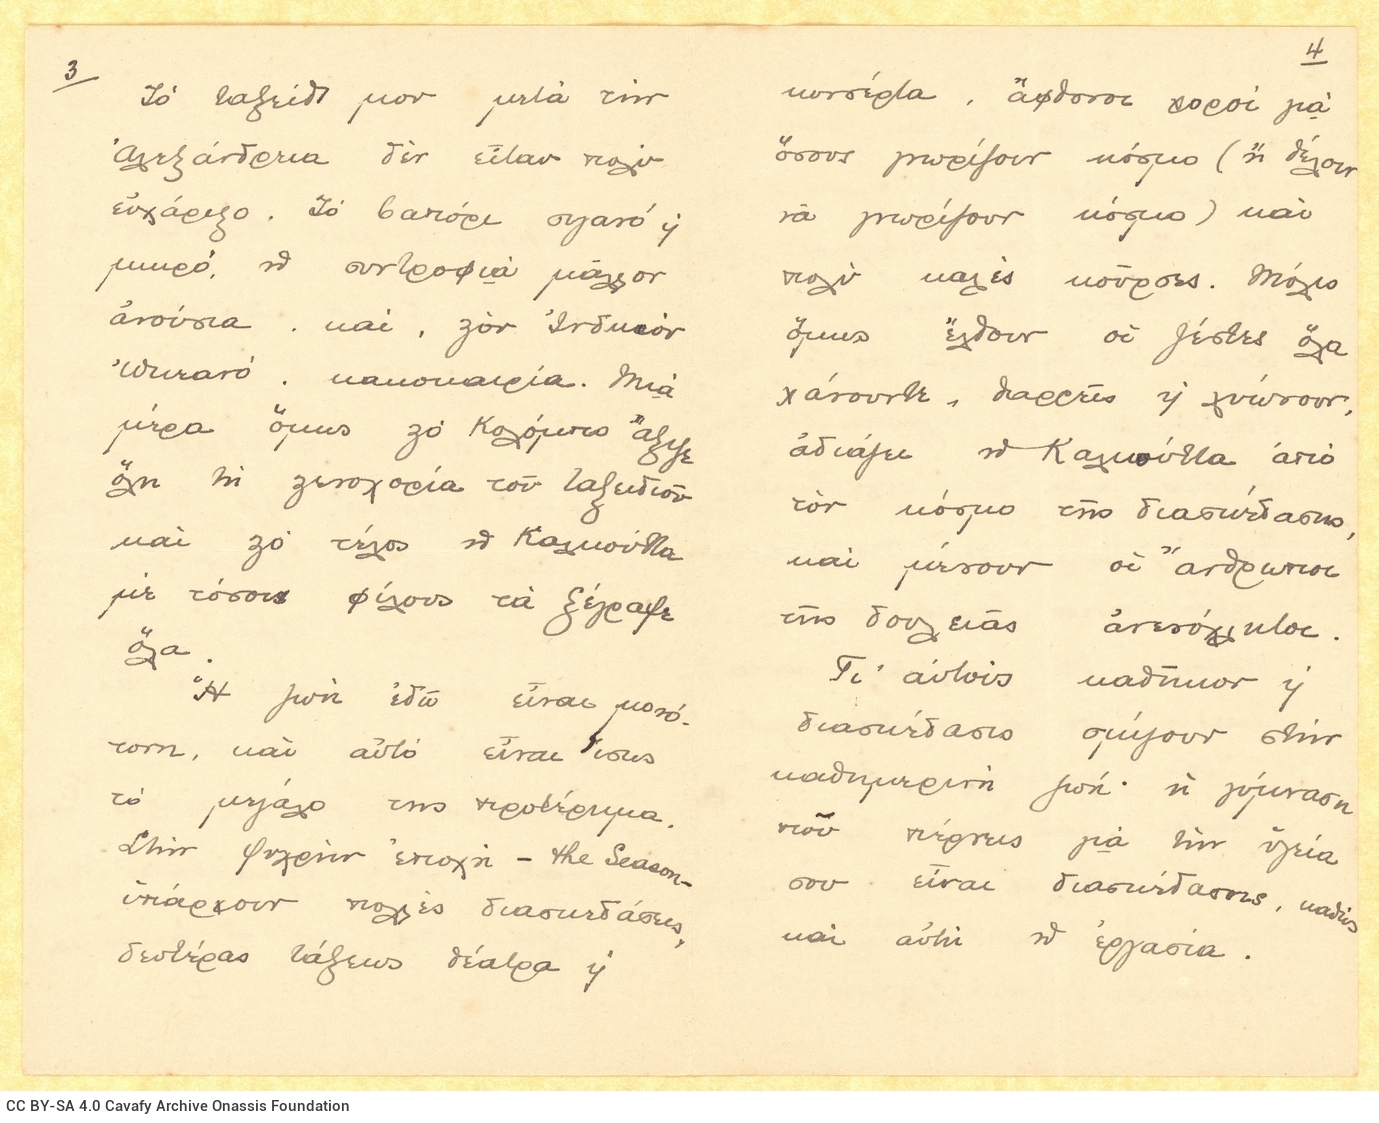 3
Τὸ ταξεῖδι μου μετὰ τὴν
Ἀλεξάνδρεια δὲν εἶταν πολὺ
εὐχάριστο. Τὸ βαπόρι στενό ἢ
μικρό, ἡ συντροφιὰ μᾶλλον
ἀνούσια. καὶ, στὸν Ἰνδικὸν
Ὠκεανό. κακοκαιρία. Μιὰ
μέρα ὅμως στὸ Κολόμπο ἄξιζε
ὅλη τὴ στενοχορία τοῦ ταξειδιοῦ
καὶ στὸ τέλος ἡ Καλκούττα
μὲ τόσους φίλους τὰ ξέγραψε
ὅλα.
Ἡ ζωὴ ἐδῶ εἶναι μονό-
τονη, καὶ αὐτὸ εἶναι ἴσως
τὸ μεγάλο της προτέρημα.
Στὴν ψυχρὴν ἐποχὴ – the Season–
ὑπάρχουν πολλὲς διασκεδάσεις,
δευτέρας τάξεως θέατρα ἢ
4
κονσέρτα, ἄφθονοι χοροὶ γιὰ
ὅσους γνωρίζουν κόσμο (ἢ θέλουν
νὰ γνωρίζουν κόσμο) καὶ
πολὺ καλὲς κοῦρσες. Μόλις
ὅμως ἔλθουν οἱ ζέστες ὅλα
χάνουνται, θαρρεῖς ἢ χνώνουν,
ἀδιάζει ἡ Καλκούττα ἀπὸ
τὸν κόσμο τῆς διασκέδασης,
καὶ μένουν οἱ ἄνθρωποι
τῆς δουλειᾶς ἀνενόχλητοι.
Γι' αὐτοὺς καθῆκον ἢ
διασκέδασις σμίγουν στὴν
καθημερινὴ ζωή· ἡ γύμναση
ποῦ πέρνεις γιὰ τὴν ὑγεία
σου εἶναι διασκέδασις, καθὼς
καὶ αὐτὴ ἡ ἐργασία.
CC BY-SA 4.0 Cavafy Archive Onassis Foundation